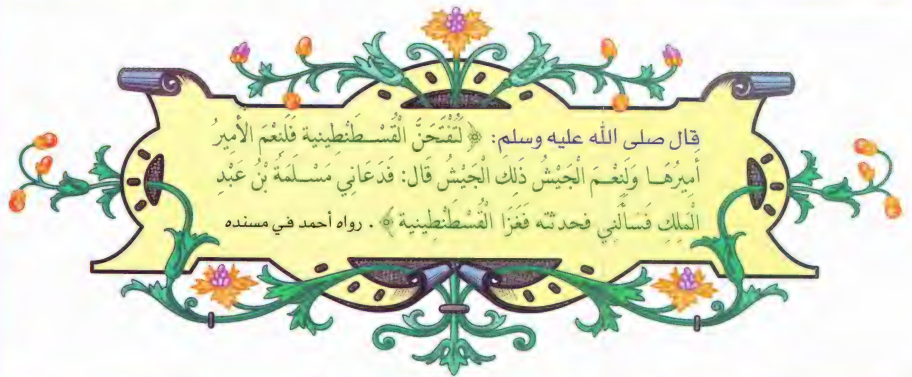 قال صلى الله عليه وسلم: ﴿ لَتُفْتَحَنَّ الْقُسْطَنْطِينِية فَلَنِعْمَ الأَمِيرُ
أَمِيرُهَا وَلَنِعْمَ الْجَيْشُ ذَلك الْجَيْشُ قَال: فَدَعَانِي مَسْلَمَةُ بْنُ عَبْدِ
الْمَلِكِ فَسأَلَنِي فحدثته فَغَزَا الْقُسْطَنْطِينِية ﴾ . رواه أحمد في مسنده